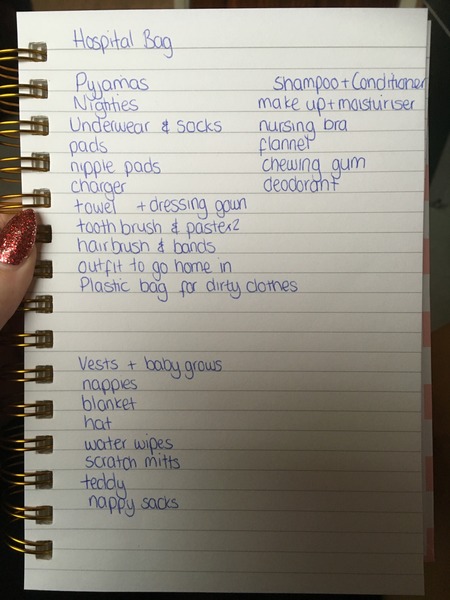 Hospital Bag
Pyjamas
Nighties
Underwear & socks
pads
nipple pads
charger
towel + dressing gown
tooth brush & paste x2
hairbrush & bands
outfit to go home in
Plastic bag for dirty clothes
Shampoo + Conditioner
make up + moisturiser
nursing bra
flannel
chewing gum
deodorant
Vests + baby grows
nappies
blanket
hat
water wipes
scratch mitts
teddy
nappy sacks